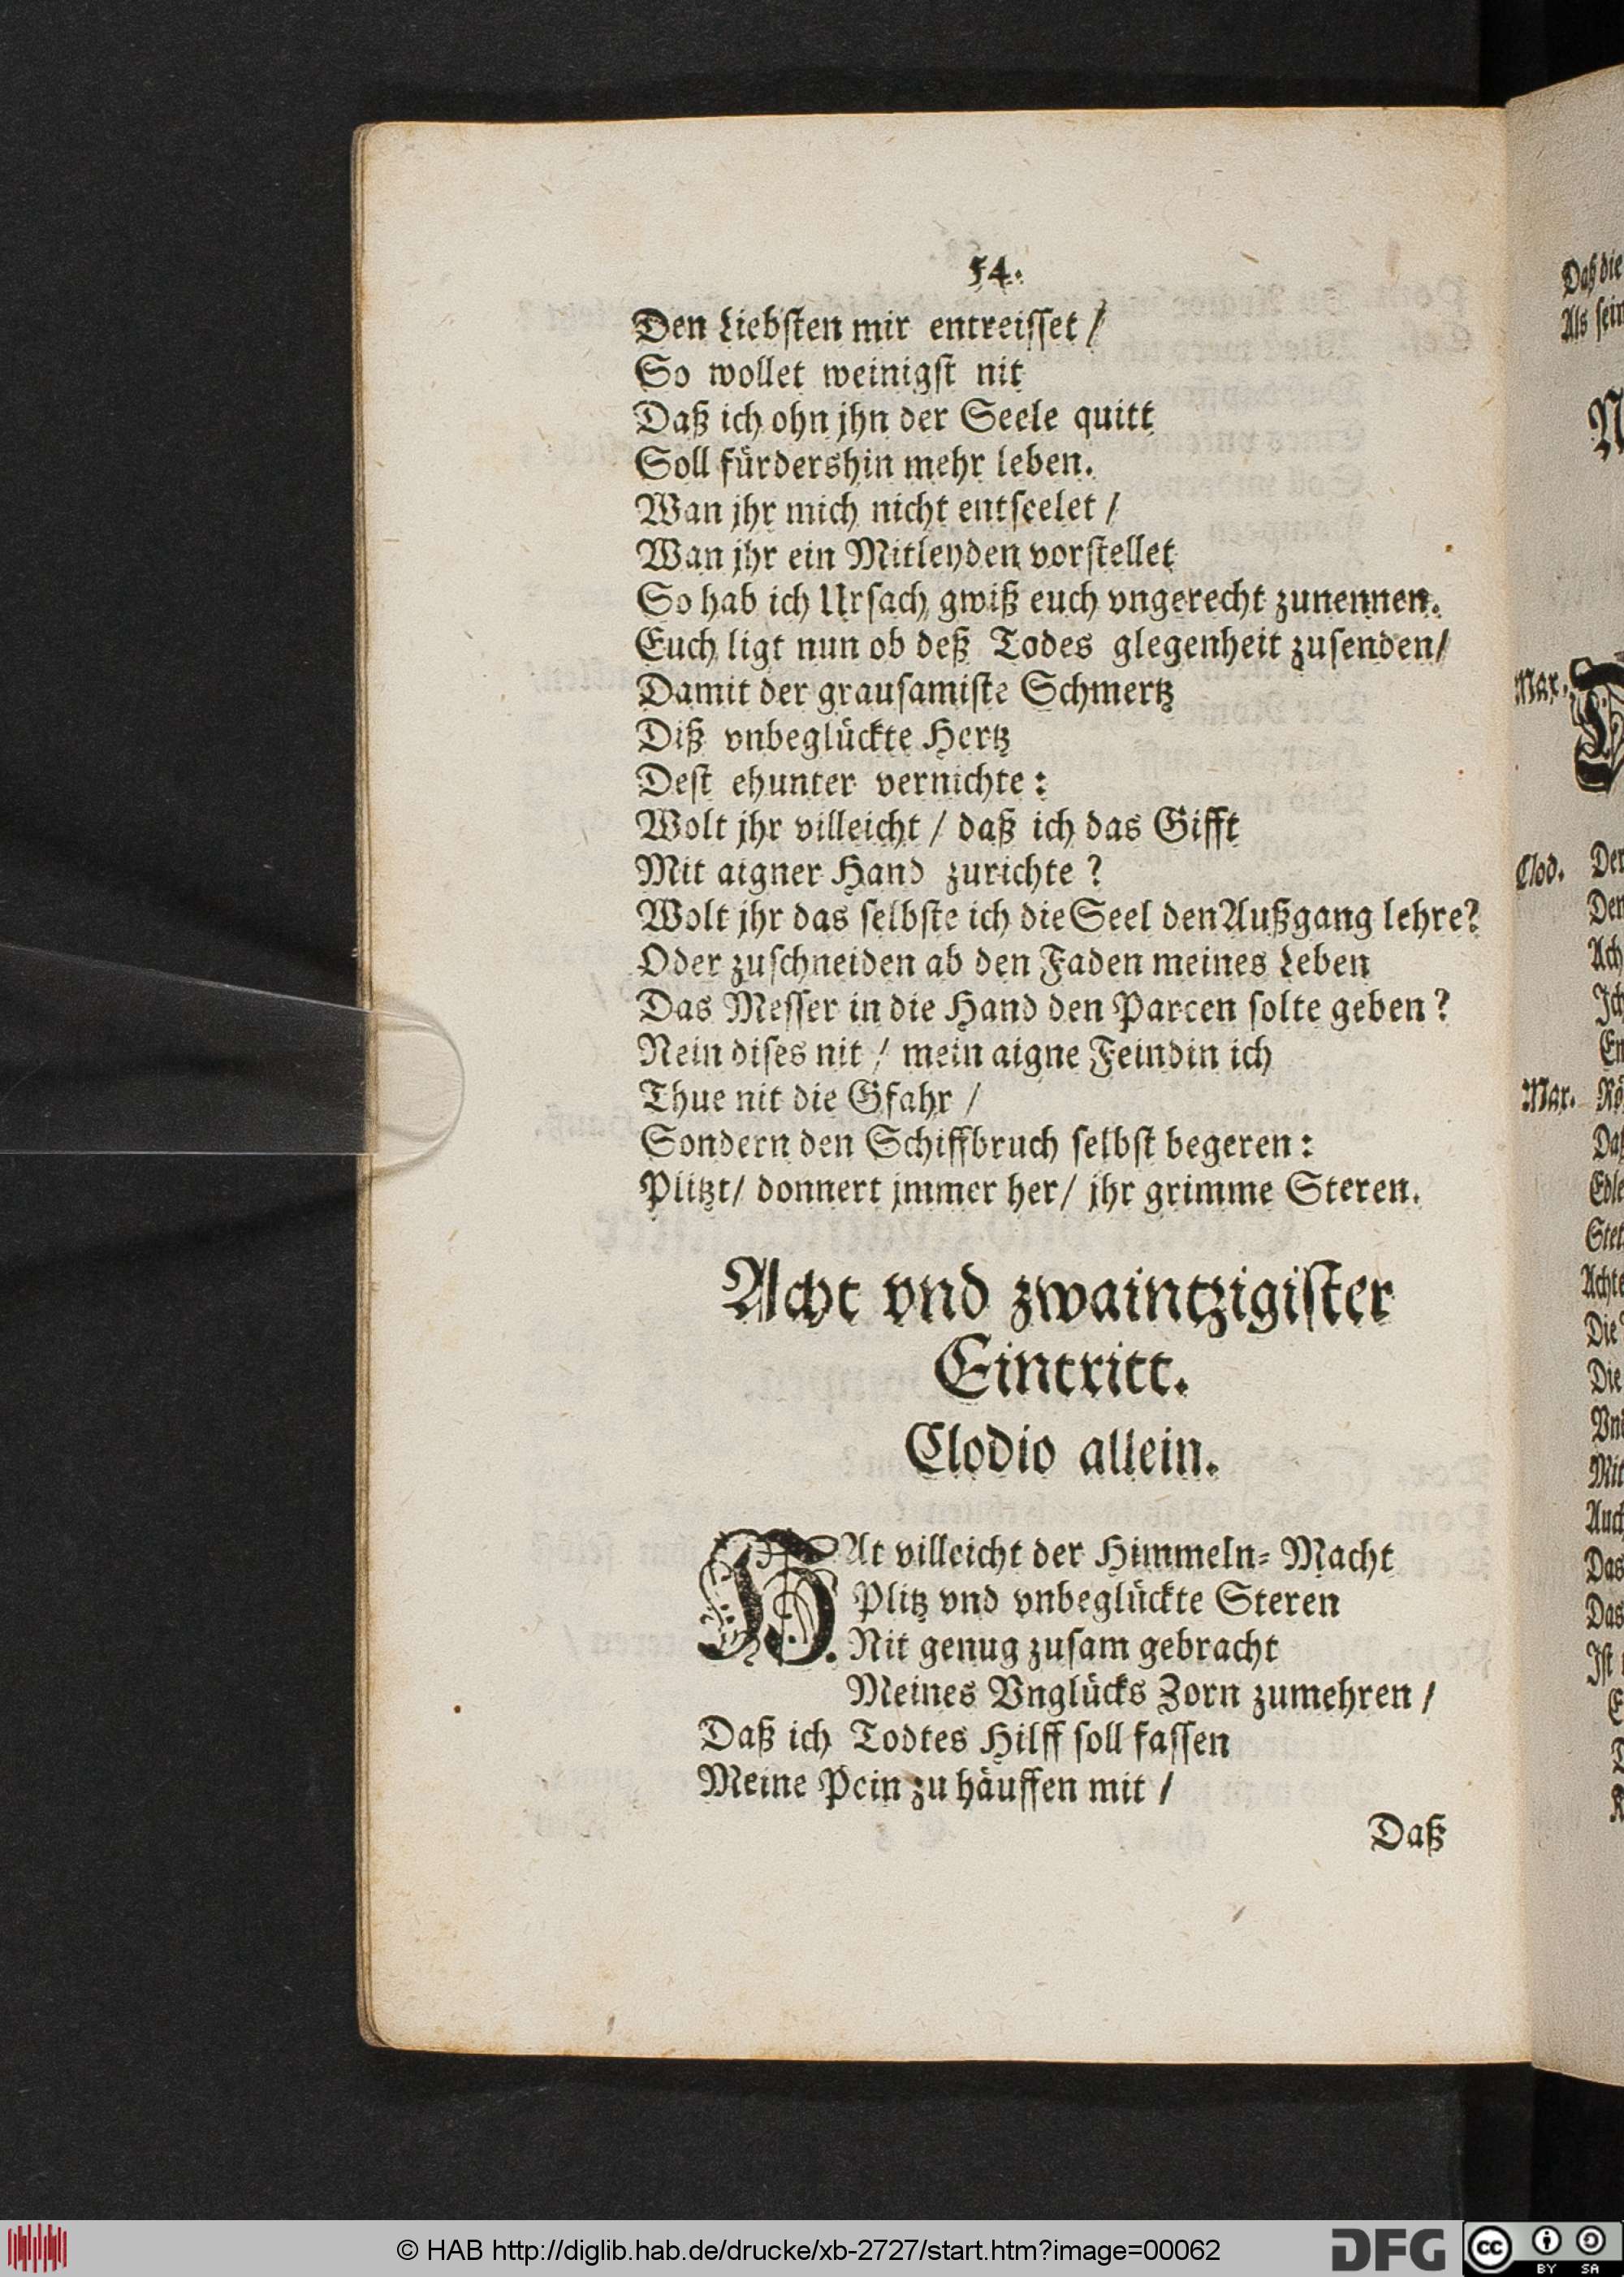 54.
Den Liebsten mir entreisset /
So wollet weinigst nit
Daß ich ohn jhn der Seele quitt
Soll fürdershin mehr leben.
Wan jhr mich nicht entseelet /
Wan jhr ein Mitleyden vorstellet
So hab ich Ursach gwiß euch vngerecht zunennen.
Euch ligt nun ob deß Todes glegenheit zusenden/
Damit der grausamiste Schmertz
Diß vnbeglückte Hertz
Dest ehunter vernichte:
Wolt jhr villeicht / daß ich das Gifft
Mit aigner Hand zurichte?
Wolt jhr das selbste ich die Seel den Außgang lehre?
Oder zuschneiden ab den Faden meines Leben
Das Messer in die Hand den Parcen solte geben?
Nein dises nit / mein aigne Feindin ich
Thue nit die Gfahr /
Sondern den Schiffbruch selbst begeren:
Plitzt/ donnert jmmer her/ jhr grimme Steren.
Acht vnd zwaintzigister
Eintritt.
Clodio allein.
HAt villeicht der Himmeln-Macht
Plitz vnd vnbeglückte Steren
Nit genug zusam gebracht
Meines Vnglücks Zorn zumehren /
Daß ich Todtes Hilff soll fassen
Meine Pein zu häuffen mit /
Daß
Daß die
Als sein
Mar.
Clod. Der
Den
Ach
Ich
En
Mar. Rö
Daß
Edle
Stet
Achte
Die
Die
Vnd
Mit
Auch
Das
Das
Ist
© HAB http://diglib.hab.de/drucke/xb-2727/start.htm?image=00062
DFG
cc BY SA